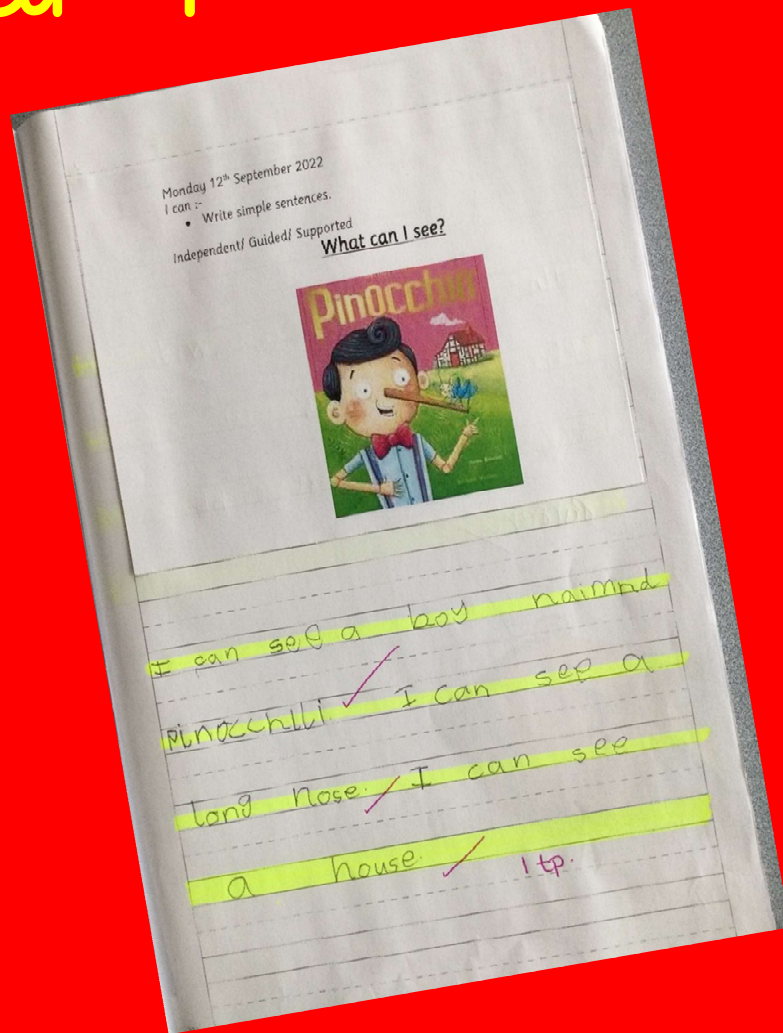 Monday 12th September 2022
I can :-
• Write simple sentences.
Independent/ Guided/ Supported
What can I see?
Pinocchio
I can see a boy naimnd
pinocchiii. I can see a
long nose. I can see
a house.
1 tp.